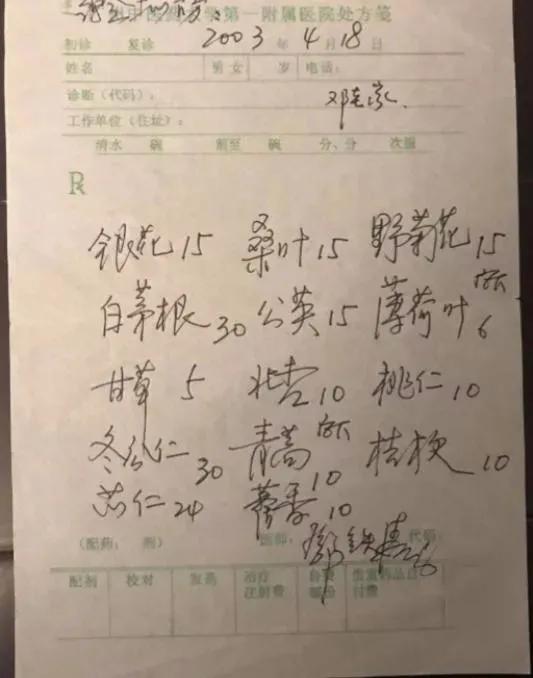 医药大学第一附属医院处方笺
初诊 复诊 2003年4月18日
姓名 男女 岁 电话：
诊断（代码）：
工作单位（住址）：
清水 碗 煎至 碗 分、分 次服
R
银花15 桑叶15 野菊花15
后下
白茅根30 公英15 薄荷叶6
甘草5 北杏10 桃仁10
后下
冬瓜仁30 青蒿10 桔梗10
苡仁24 藿香10
（配药： 剂） 医师： 代码：
配剂 校对 发药 治疗 自费
注射费 部份 付费